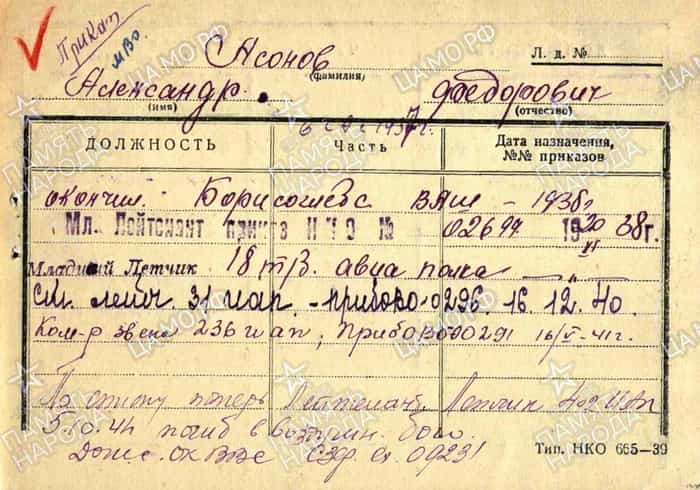 Приказ
МВО
Асонов
Л. д. №
(фамилия)
Александр
Федорович
(имя)
(отчество)
в СА с 1937г.
ДОЛЖНОСТЬ
Часть
Дата назначения,
№№ приказов
окончил Борисоглебс ВАШ – 1938г
Мл. Лейтенант приказ НКО № 02697 1938г.
Младший Летчик 18 тяж. авиа полка — „ —
Ст. лейт. 31 иап. – прибово-0296. 16. 12. 40.
Ком-р звена 236 иап, Прибово 00291 16/V-41г.
По списку потерь Лейтенант, Летчик 402 ИАП
5.10.41 погиб в воздушн. бою.
Донес. СЗФ вх. 09231
Тип. НКО 665—39
ЦАМО РФ
ПАМЯТЬ НАРОДА